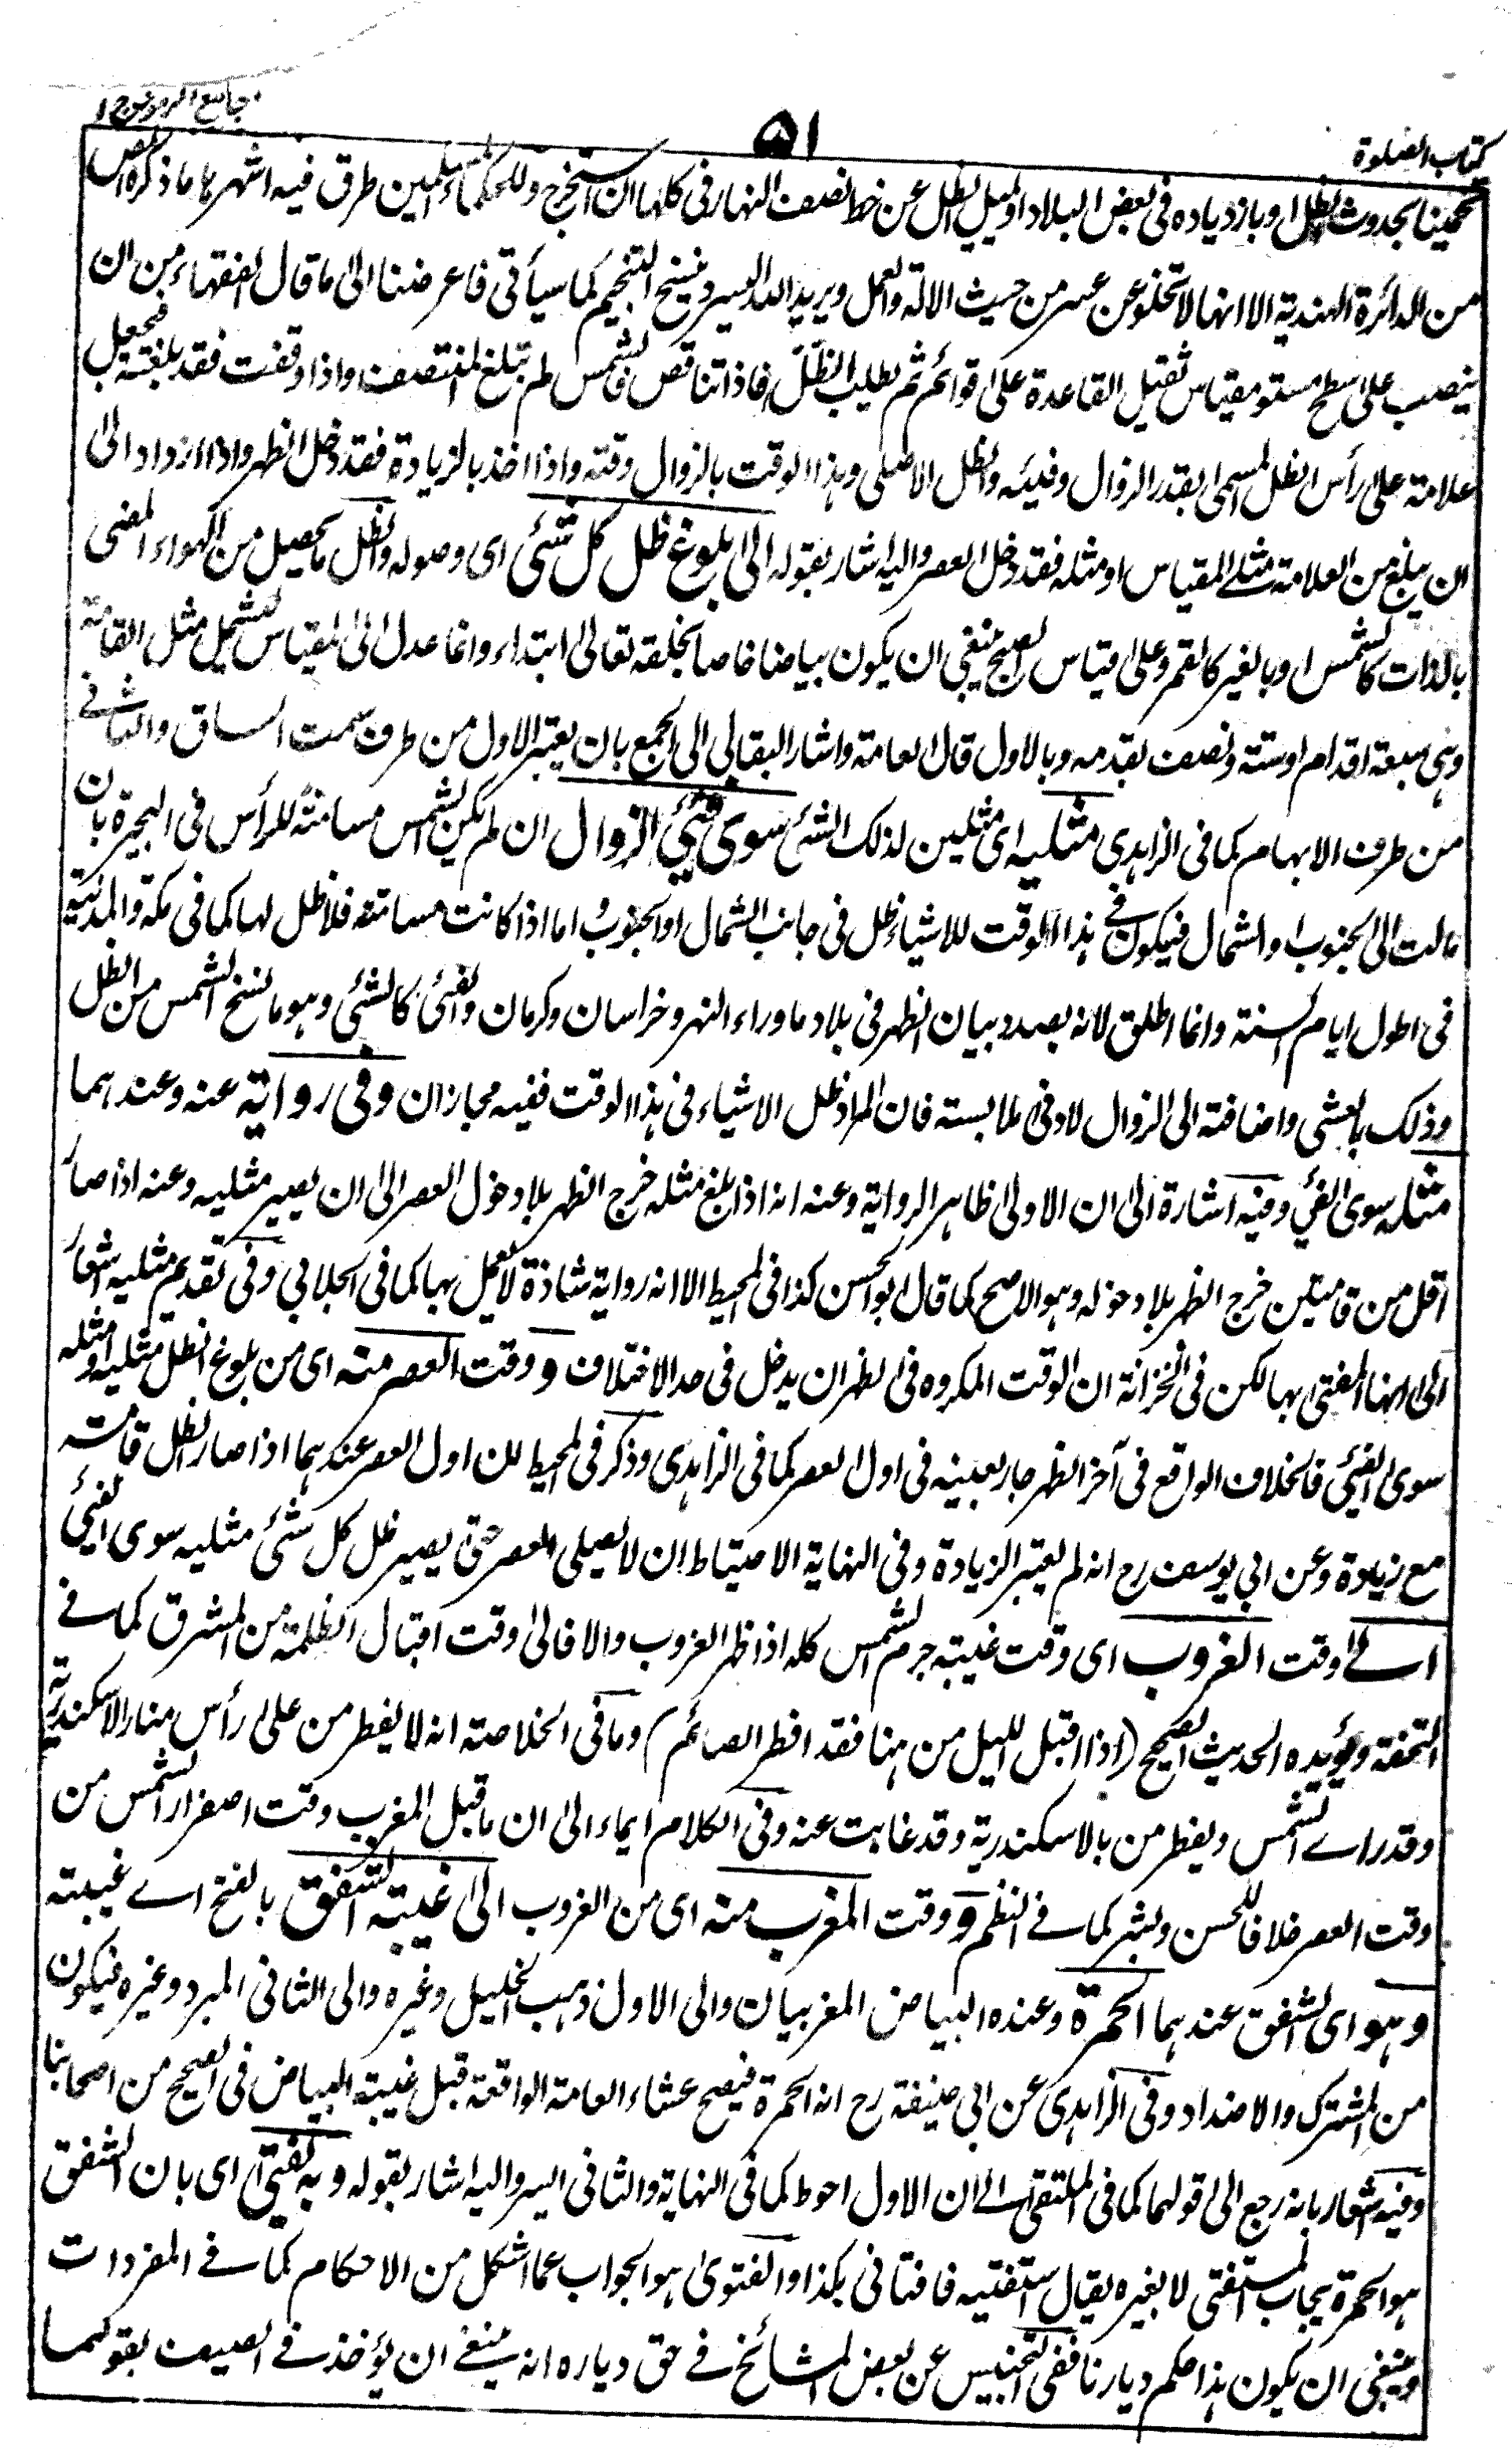 كتاب الصلوة
٥١
جامع الرموز ج ١
تخمينا بحدوث الظل او بازدياده فى بعض البلاد او لميل الظل عن خط نصف النهار فى كلها ان استخرج وللحكماء المسلمين طرق فيه اشهرها ما ذكره المص
من الدائرة الهندية الا انها لا تخلو عن عسر من حيث الالة والعمل ويريد الدال اليسر وينسخ التنجيم كما سيأتى فاعرضنا الى ما قال الفقهاء من ان
ينصب على سطح مستو مقياس ثقيل القاعدة على قوائم ثم يطلب الظل فاذا تناقص فالشمس لم تبلغ المنتصف واذا وقفت فقد بلغته فيجعل
علامة على رأس الظل المسمى بقدر الزوال وفيئه والظل الاصلى وهذا الوقت بالزوال وقته واذا اخذ بالزيادة فقد دخل الظهر واذا ازداد الى
ان يبلغ من العلامة مثلے المقياس او مثله فقد دخل العصر واليه اشار بقوله الى بلوغ ظل كل شئ اى وصوله والظل ما يحصل من الهواء المضى
بالذات كالشمس او بالغير كالقمر وعلى قياس الصبح ينبغى ان يكون بياضا خاصا يخلقه تعالى ابتداء وانما عدل الى المقياس ليشمل مثل القامة
وهى سبعة اقدام او ستة ونصف بقدمه وبالاول قال العامة واشار البقالى الى الجمع بان يعتبر الاول من طرف سمت الساق والثانے
من طرف الابهام كما فى الزاهدى مثليه اى مثلين لذلك الشئ سوى فئ الزوال ان لم تكن الشمس مسامتة للرأس فى البحيرة بان
مالت الى الجنوب او الشمال فيكون فے هذا الوقت للاشياء ظل فى جانب الشمال او الجنوب واما اذا كانت مسامتة فلا ظل لها كما فى مكة والمدينة
فى اطول ايام السنة وانما اطلق لانه بصدد بيان الظهر فى بلاد ما وراء النهر وخراسان وكرمان والفئ كالشئ وهو ما نسخ الشمس من الظل
وذلك بالعشى واضافته الى الزوال لادنى ملابسة فان المراد ظل الاشياء فى هذا الوقت ففيه مجازان وفى رواية عنه وعندهما
مثله سوى الفئ وفيه اشارة الى ان الاولى ظاهر الرواية وعنه انه اذا بلغ مثله خرج الظهر بلا دخول العصر الى ان يصير مثليه وعنه اذا صار
اقل من قامتين خرج الظهر بلا دخوله وهو الاصح كما قال ابو الحسن كذا فى المحيط الا انه رواية شاذة لا يعمل بها كما فى الجلابى وفى تقديم مثليه اشعار
الى انها المفتى بها لكن فى الخزانة ان الوقت المكروه فى الظهر ان يدخل فى حد الاختلاف و وقت العصر منه اى من بلوغ الظل مثليه او مثله
سوى الفئ فالخلاف الواقع فى آخر الظهر جار بعينه فى اول العصر كما فى الزاهدى وذكر فى المحيط ان اول العصر عندهما اذا صار الظل قامة
مع زيادة وعن ابى يوسف رح انه لم يعتبر الزيادة وفى النهاية الاحتياط ان لا يصلى العصر حتى يصير ظل كل شئ مثليه سوى الفئ
الے وقت الغروب اى وقت غيبة جرم الشمس كله اذا ظهر الغروب والا فالى وقت اقبال الظلمة من المشرق كما فے
التحفة ويؤيده الحديث الصحيح (اذا اقبل الليل من هنا فقد افطر الصائم) وما فى الخلاصة انه لا يفطر من على رأس منار الاسكندرية
وقد راے الشمس ويفطر من بالاسكندرية وقد غابت عنه وفى الكلام ايماء الى ان ما قبل المغرب وقت اصفرار الشمس من
وقت العصر خلافا للحسن وبشر كما فے النظم و وقت المغرب منه اى من الغروب الى غيبة الشفق بالفتح اے غيبته
وهو اى الشفق عندهما الحمرة وعنده البياض المغربيان والى الاول ذهب الخليل وغيره والى الثانى المبرد وغيره فيكون
من المشترك والاضداد وفى الزاهدى عن ابى حنيفة رح انه الحمرة فيصح عشاء العامة الواقعة قبل غيبة البياض فى الصحيح من اصحابنا
وفيه اشعار بانه رجع الى قولهما كما فى الملتقى الے ان الاول احوط كما فى النهاية والثانى ايسر واليه اشار بقوله وبه يفتى اى بان الشفق
هو الحمرة يجاب المستفتى لا بغيره يقال استفتيه فافتانى بكذا والفتوى هو الجواب عما اشكل من الاحكام كما فے المفردات
وينبغى ان يكون هذا حكم ديارنا ففى التجنيس عن بعض المشائخ فے حق دياره انه ينبغے ان يؤخذ فے الصيف بقولهما